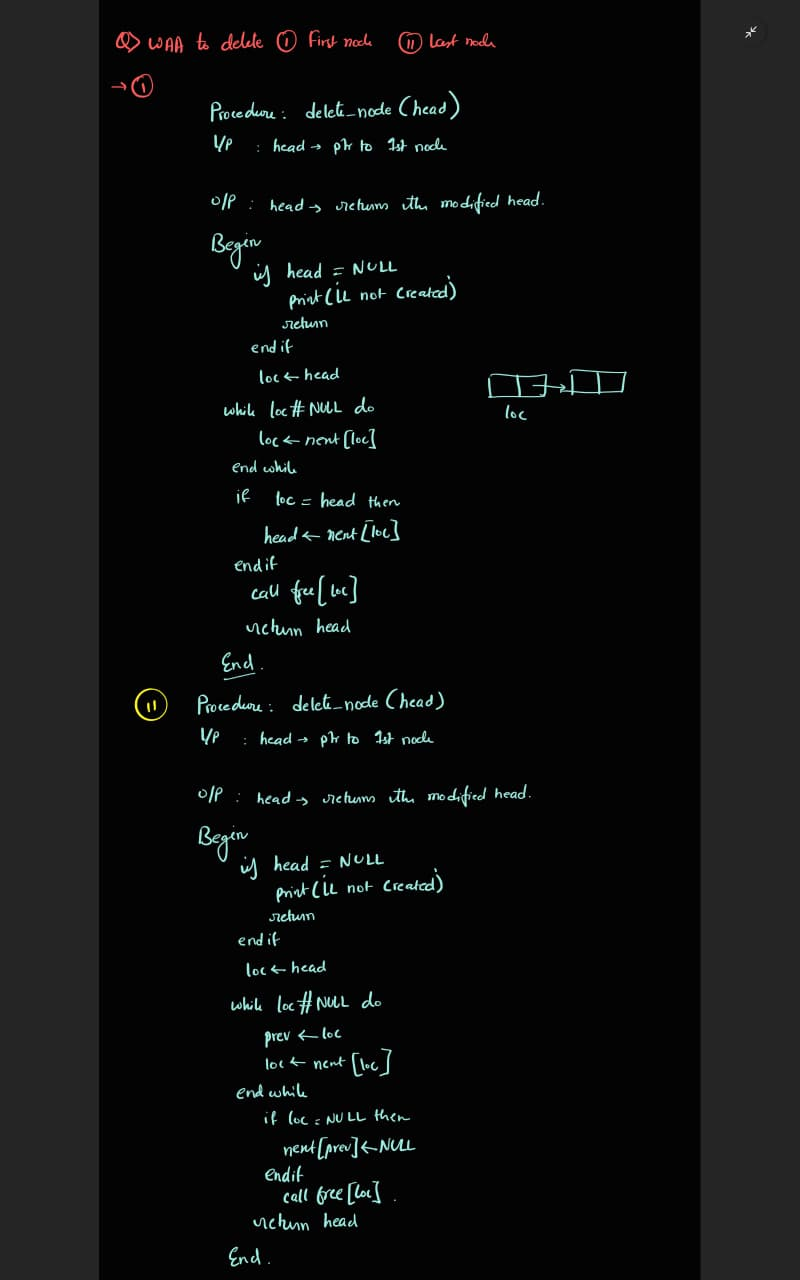 Q> WAA to delete ① First node ⑪ Last node
→ ①
Procedure : delete_node (head)
I/P : head → ptr to 1st node
O/P : head → returns the modified head.
Begin
if head = NULL
print (LL not created)
return
end if
loc ← head
while loc ≠ NULL do
loc ← next [loc]
end while
loc
if loc = head then
head ← next [loc]
end if
call free [loc]
return head
End.
⑪ Procedure : delete_node (head)
I/P : head → ptr to 1st node
O/P : head → returns the modified head.
Begin
if head = NULL
print (LL not created)
return
end if
loc ← head
while loc ≠ NULL do
prev ← loc
loc ← next [loc]
end while
if loc = NULL then
next [prev] ← NULL
endif
call free [loc] .
return head
End.